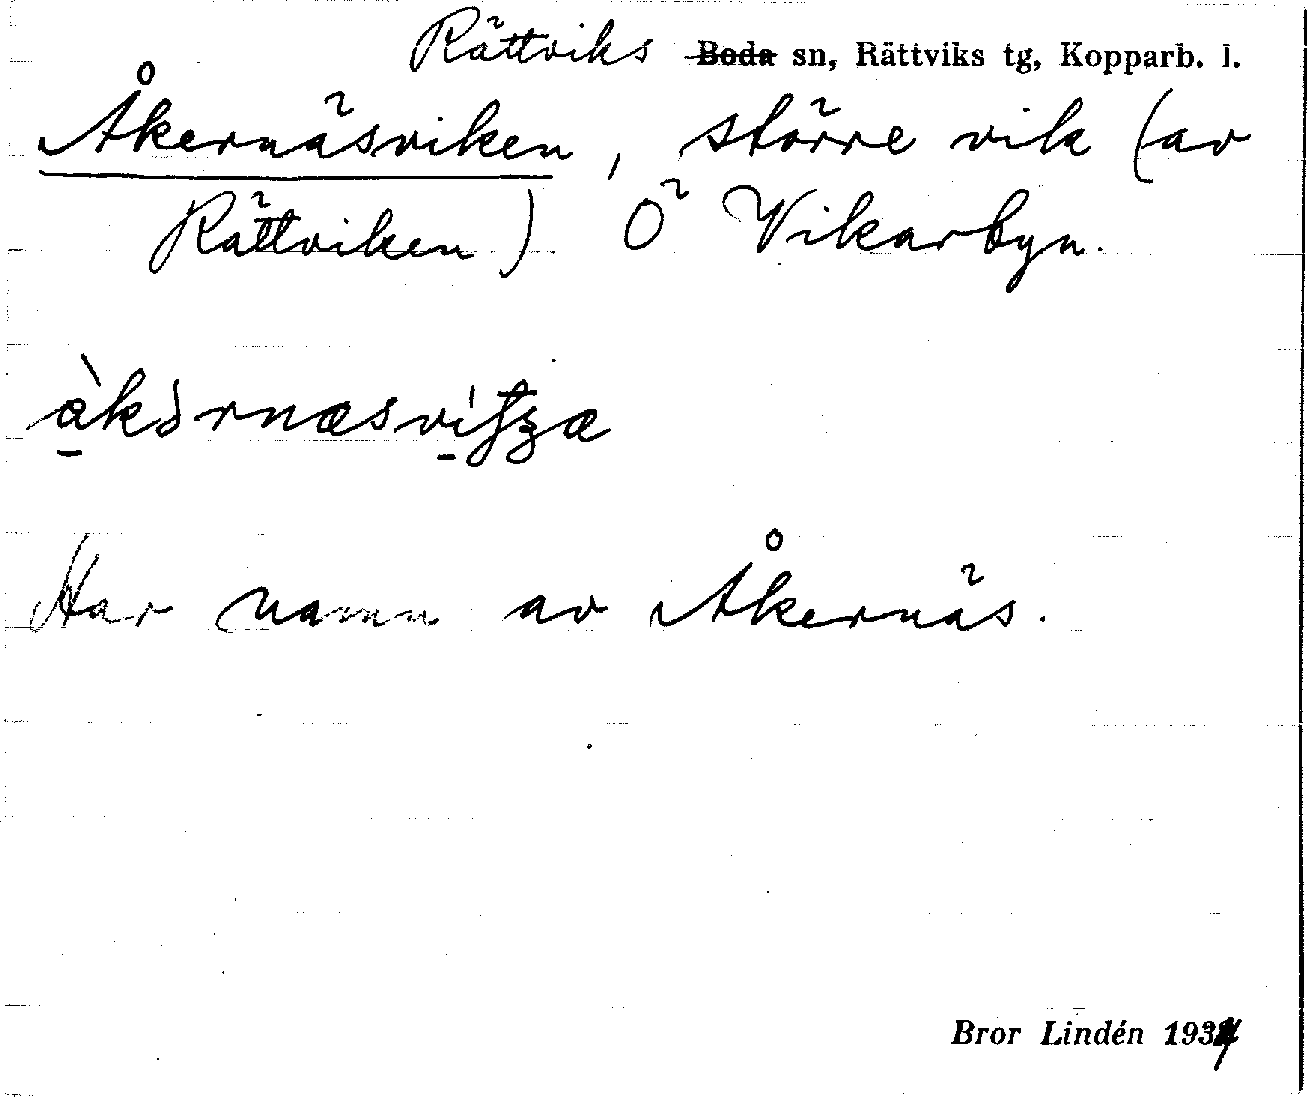 Rättviks Boda sn, Rättviks tg, Kopparb. l.
Åkernäsviken, större vik (av
Rättviken) Ö Vikarbyn.
Har namn av Åkernäs.
Bror Lindén 1934